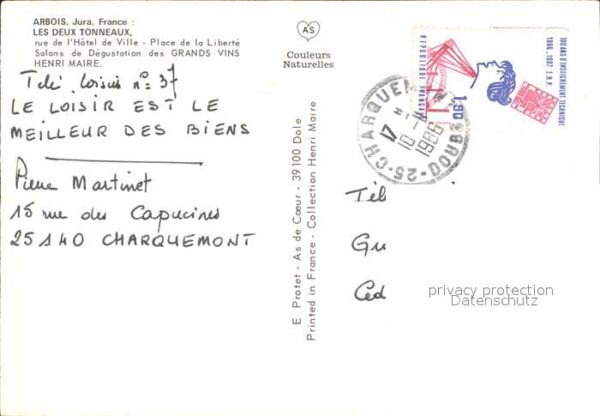 ARBOIS, Jura, France :
LES DEUX TONNEAUX,
rue de l'Hôtel de Ville - Place de la Liberté
Salons de Dégustation des GRANDS VINS
HENRI MAIRE.
Télé Loisirs n° 37
LE LOISIR EST LE
MEILLEUR DES BIENS
Pierre Martinet
15 rue des Capucines
25140 CHARQUEMONT
AS
Couleurs
Naturelles
E Protet - As de Cœur - 39100 Dole
Printed in France - Collection Henri Maire
25-CHARQUEMONT DOUBS
17 H
10 -
1986
REPUBLIQUE FRANÇAISE
1,90
ENSEIGNEMENT TECHNIQUE
Tél
Gu
Ced
privacy protection
Datenschutz